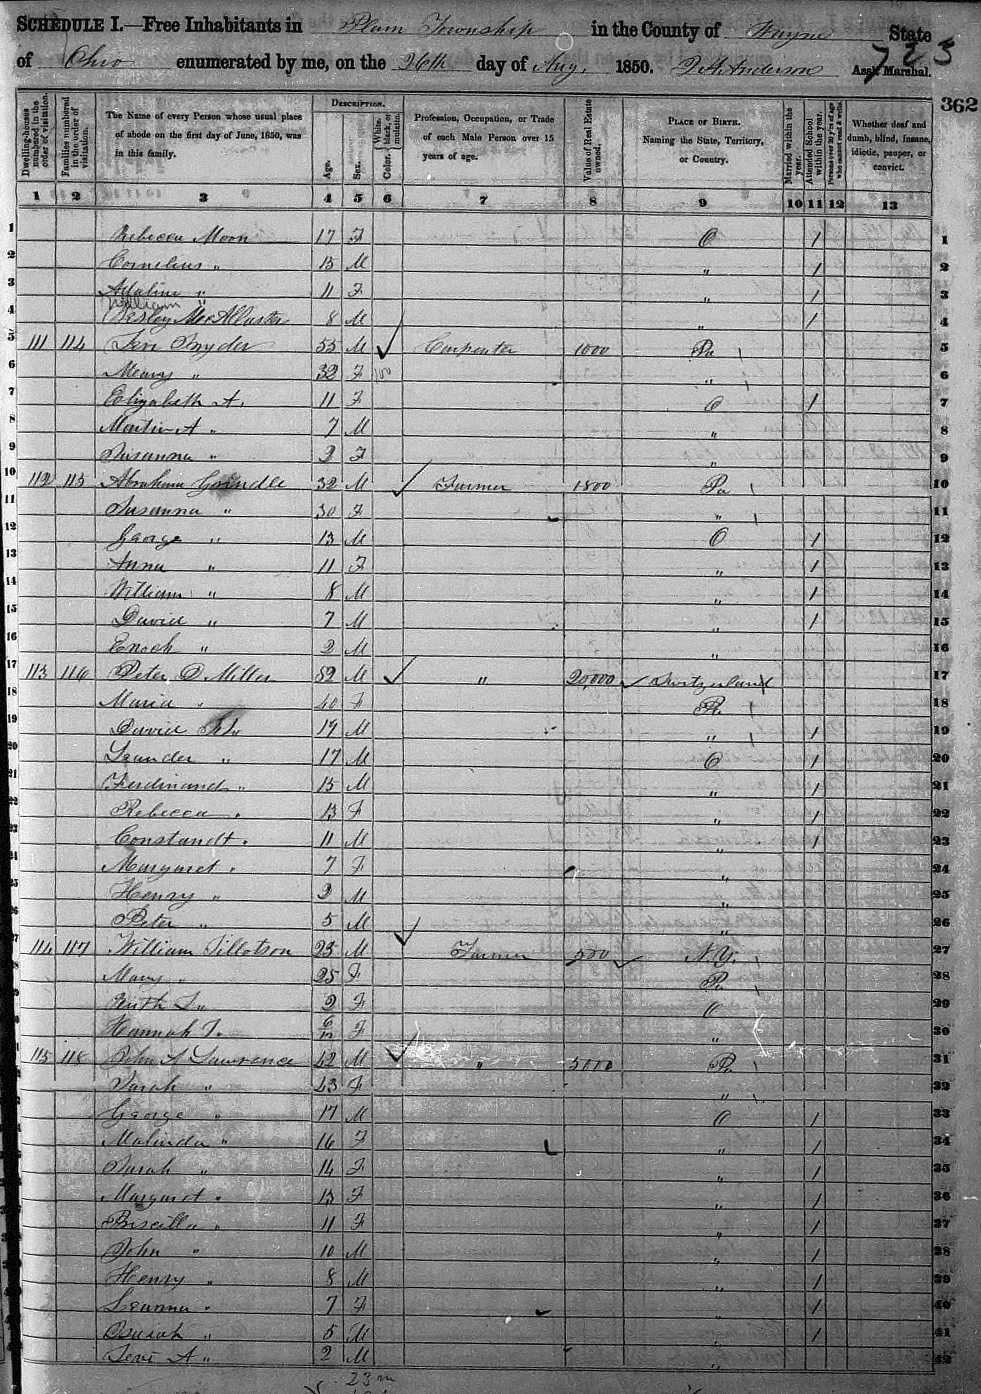 SCHEDULE I.—Free Inhabitants in Plain Township in the County of Wayne State
of Ohio enumerated by me, on the 26th day of Aug. 1850. Anderson Ass't Marshal.
723
362
Dwelling-houses numbered in the order of visitation.
Families numbered in the order of visitation.
The Name of every Person whose usual place of abode on the first day of June, 1850, was in this family.
DESCRIPTION.
Age.
Sex.
Color. White, black, or mulatto.
Profession, Occupation, or Trade of each Male Person over 15 years of age.
Value of Real Estate owned.
PLACE OF BIRTH. Naming the State, Territory, or Country.
Married within the year.
Attended School within the year.
Persons over 20 y'rs of age who cannot read & write.
Whether deaf and dumb, blind, insane, idiotic, pauper, or convict.
1 2 3 4 5 6 7 8 9 10 11 12 13
1 Rebecca Moon 17 F O / 1
2 Cornelius " 15 M " / 2
3 Adaline " 11 F " / 3
William "
4 Wesley McAllaster 8 M " / 4
5 111 114 Levi Snyder 55 M Carpenter 1000 Pa 5
6 Meary " 32 F " 6
7 Elizabeth A. 11 F O / 7
8 Martin A " 7 M " 8
9 Susanna " 2 F " 9
10 112 115 Abraham Grindle 32 M Farmer 1800 Pa 10
11 Susanna " 30 F " 11
12 George " 13 M O / 12
13 Anna " 11 F " / 13
14 William " 8 M " / 14
15 David " 7 M " / 15
16 Enoch " 2 M " 16
17 113 116 Peter D Miller 52 M " 20,000 Switzerland 17
18 Maria " 40 F Pa 18
19 David 19 M " / 19
20 Leander " 17 M O / 20
21 Ferdinand " 15 M " / 21
22 Rebecca " 13 F " / 22
23 Constandt " 11 M " / 23
24 Margaret " 7 F " 24
25 Henry " 2 M " 25
26 Peter " 5 M " 26
27 114 117 William Tillotson 23 M Farmer 500 N.Y. 27
28 Mary " 25 F Pa 28
29 Ruth S " 2 F O 29
30 Hannah T. F " 30
31 115 118 John A Lawrence 42 M " 5000 Pa 31
32 Sarah " 43 F " 32
33 George " 17 M O / 33
34 Malinda " 16 F " / 34
35 Sarah " 14 F " / 35
36 Margaret " 13 F " / 36
37 Priscilla " 11 F " / 37
38 John " 10 M " / 38
39 Henry " 8 M " / 39
40 Leanna " 7 F " / 40
41 Isaiah " 5 M " / 41
42 Levi A " 2 M " 42
23 m